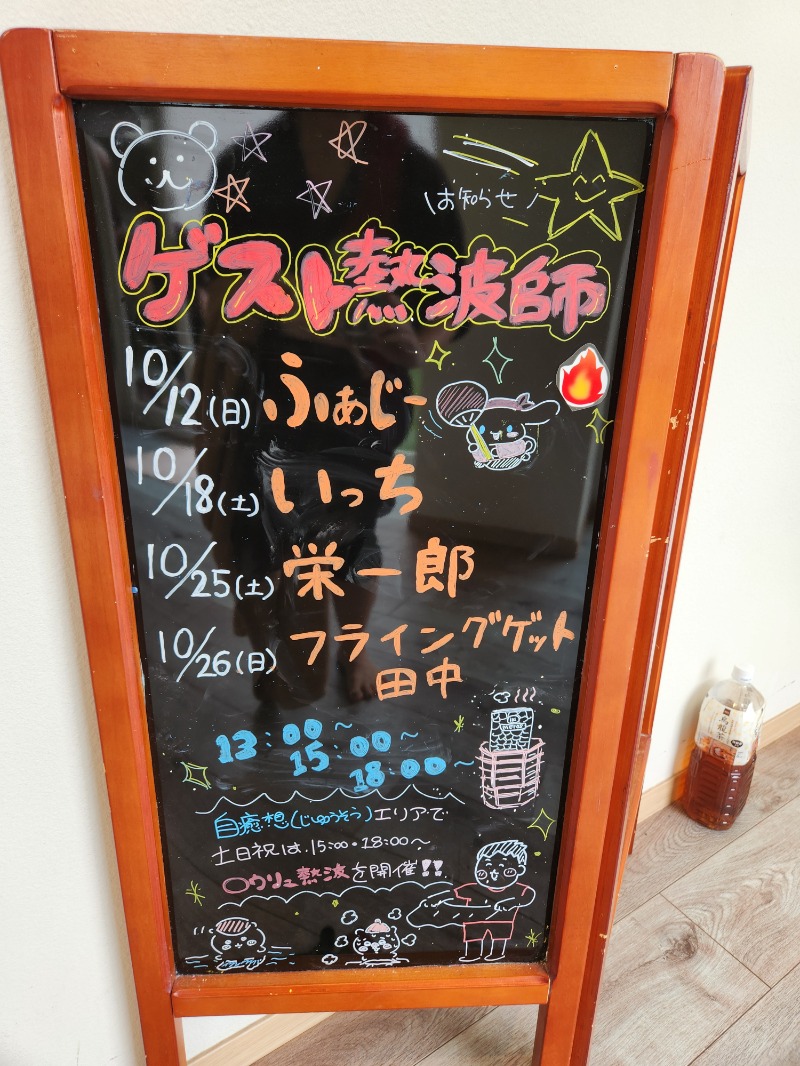 \お知らせ/
ゲスト熱波師
10/12(日) ふぁじー
10/18(土) いっち
10/25(土) 栄一郎
10/26(日) フライングゲット
田中
13:00~
15:00~
18:00~
自癒想(じゆうそう)エリアで
土日祝は、15:00・18:00~
〇ウリュ熱波を開催!!
烏龍茶